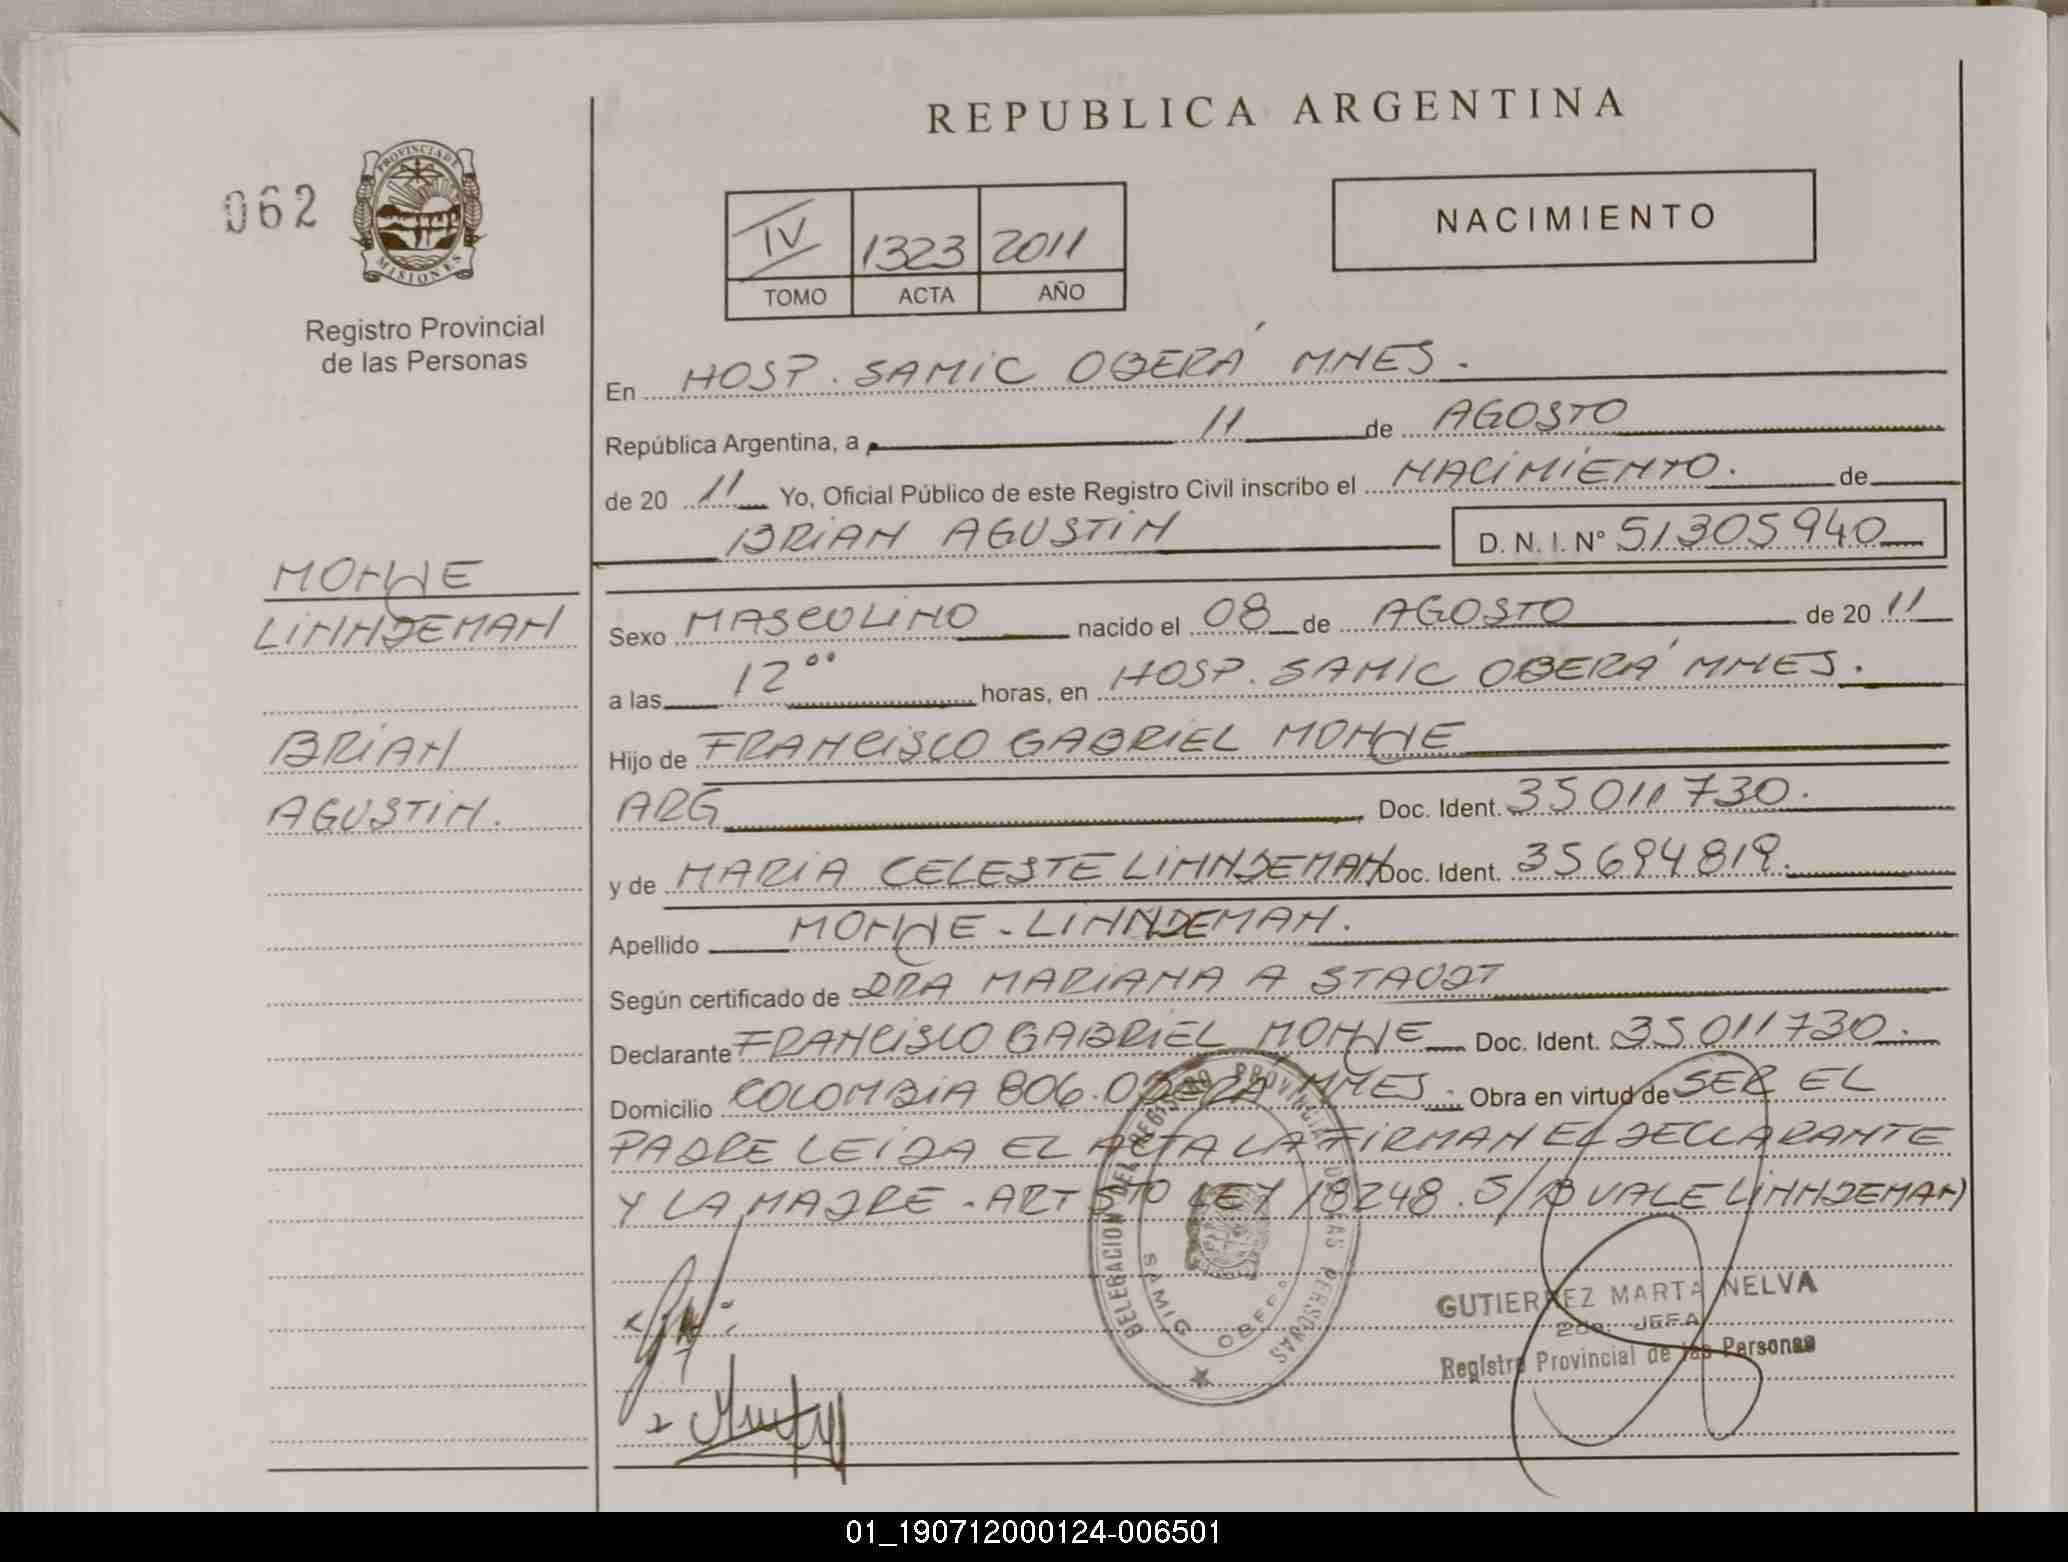 REPUBLICA ARGENTINA
062
PROVINCIA DE
MISIONES
Registro Provincial
de las Personas
IV 1323 2011
TOMO ACTA AÑO
NACIMIENTO
En HOSP. SAMIC OBERÁ MNES.
República Argentina, a 11 de AGOSTO
de 20 11 Yo, Oficial Público de este Registro Civil inscribo el NACIMIENTO. de
BRIAN AGUSTIN D. N. I. Nº 51305940
MONJE
LINNDEMAN
BRIAN
AGUSTIN.
Sexo MASCULINO nacido el 08 de AGOSTO de 20 11
a las 12°° horas, en HOSP. SAMIC OBERÁ MNES.
Hijo de FRANCISCO GABRIEL MONJE
ARG Doc. Ident. 35011730.
y de MARIA CELESTE LINNDEMAN Doc. Ident. 35694819.
Apellido MONJE - LINNDEMAN.
Según certificado de DRA MARIANA A STAUDT
Declarante FRANCISCO GABRIEL MONJE Doc. Ident. 35011730.
Domicilio COLOMBIA 806. OBERÁ MNES. Obra en virtud de SER EL
PADRE LEIDA EL ACTA LA FIRMAN EL DECLARANTE
Y LA MADRE - ART 5TO LEY 18248. S/B VALE LINNDEMAN
DELEGACION DEL REGISTRO PROVINCIAL DE LAS PERSONAS
SAMIC OBERA
GUTIERREZ MARTA NELVA
2da. JEFA
Registro Provincial de las Personas
01_190712000124-006501